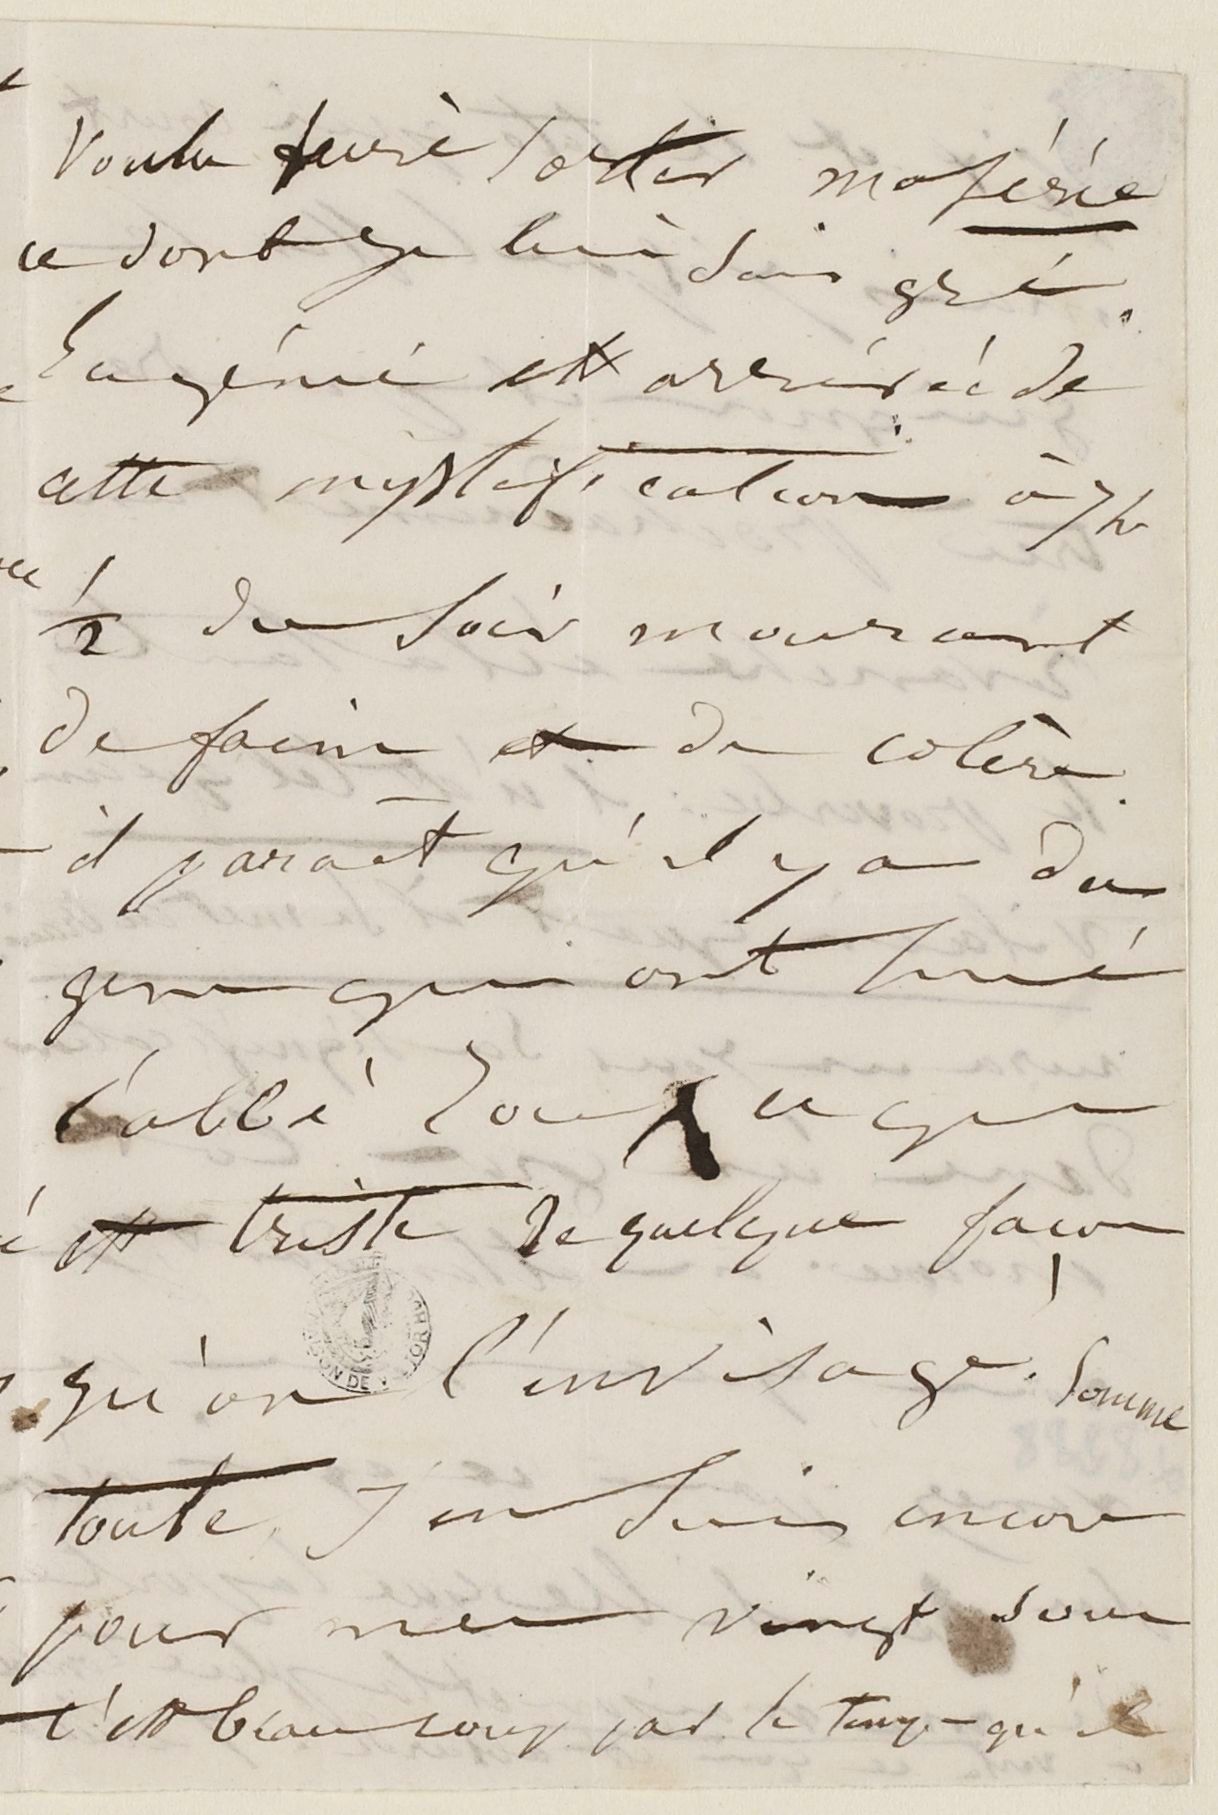 voulu faire sortir ma série
ce dont je lui sais gré.
Eugénie est arrivée de
cette mystification à 7h
1/2 du soir mourant
de faim et de colère.
il paraît qu'il y a des
gens qui ont hué
l'abbé ce qui
est triste de quelque façon
qu'on l'envisage. Somme
toute j'en suis encore
pour mes vingt sous
c'est beaucoup par le temps qu'il
MAISON DE V. HUGO